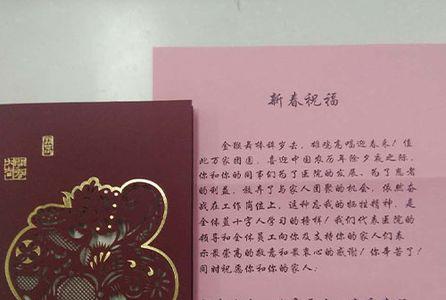 新春祝福
金猴舞棒辞岁去，雄鸡高唱迎春来！值
此万家团圆、喜迎中国农历年除夕夜之际，
你和你的同事们为了医院的发展、为了患者
的利益，放弃了与家人团聚的机会，依然奋
战在工作岗位上，这种忘我的牺牲精神，是
全体蓝十字人学习的榜样！我们代表医院的
领导和全体员工向你及支持你的家人们表
示最崇高的敬意和最衷心的感谢！你辛苦了！
同时祝愿你和你的家人：